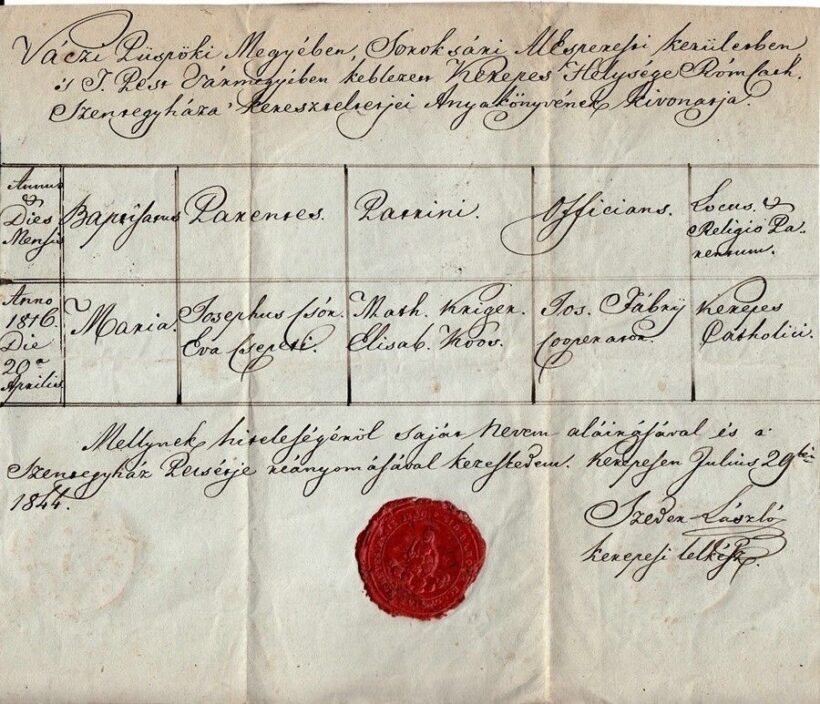 Váczi Püspöki Megyében, Soroksári AlEsperesti kerületben
is T. Pest Varmegyében keblezett Kerepes Helysége Rómkath.
Szentegyháza' kereszteltjei Anyakönyvének kivonatja.
Annus
&
Dies
Mensis
Baptisatus
Parentes.
Patrini.
Officians.
Locus &
Religio Pa-
rentum.
Anno
1816.
Die
20a
Aprilis.
Maria.
Josephus Csór.
Eva Csepeti.
Math. Kriger.
Elisab. Koos.
Jos. Fábry
Cooperator.
Kerepes
Catholici.
Mellynek hiteleségéröl saját Nevem aláirásával és a'
Szentegyház Pecsétje reányomásával kezeskedem. Kerepesen Julius 29én
1844.
Szeder László
kerepesi lelkész.